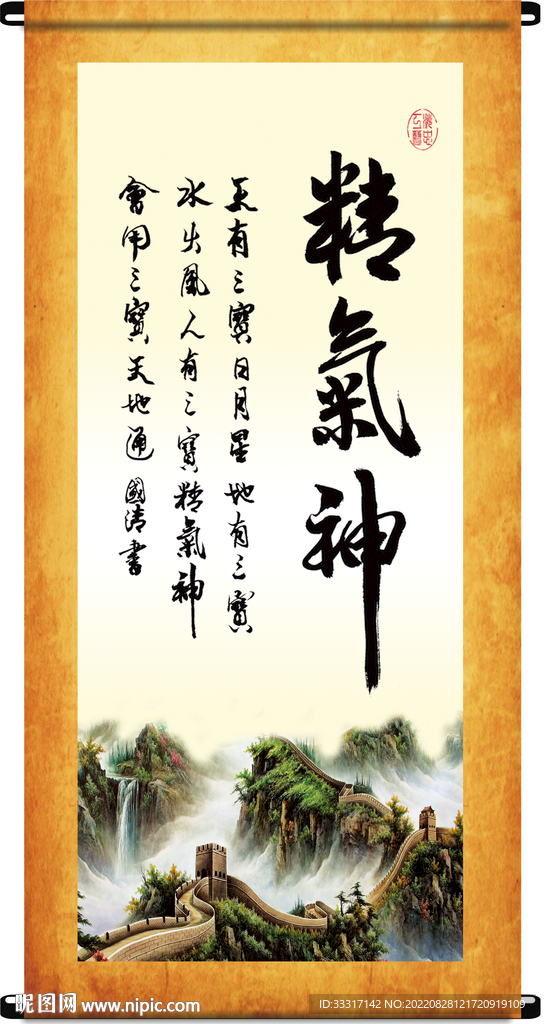 精氣神
天有三寶日月星地有三寶
水火風人有三寶精氣神
會用三寶天地通 國清書
昵图网 www.nipic.com
ID:33317142 NO:20220828121720919109